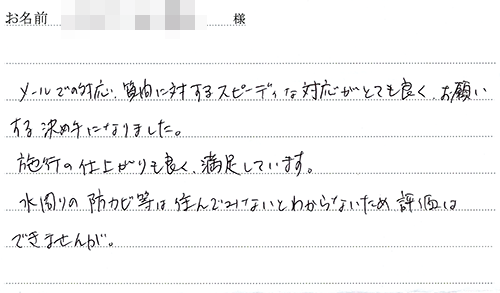 お名前 様
メールでの対応、質問に対するスピーディな対応がとても良く、お願い
する決め手になりました。
施行の仕上がりも良く、満足しています。
水周りの防カビ等は住んでみないとわからないため評価は
できませんが。